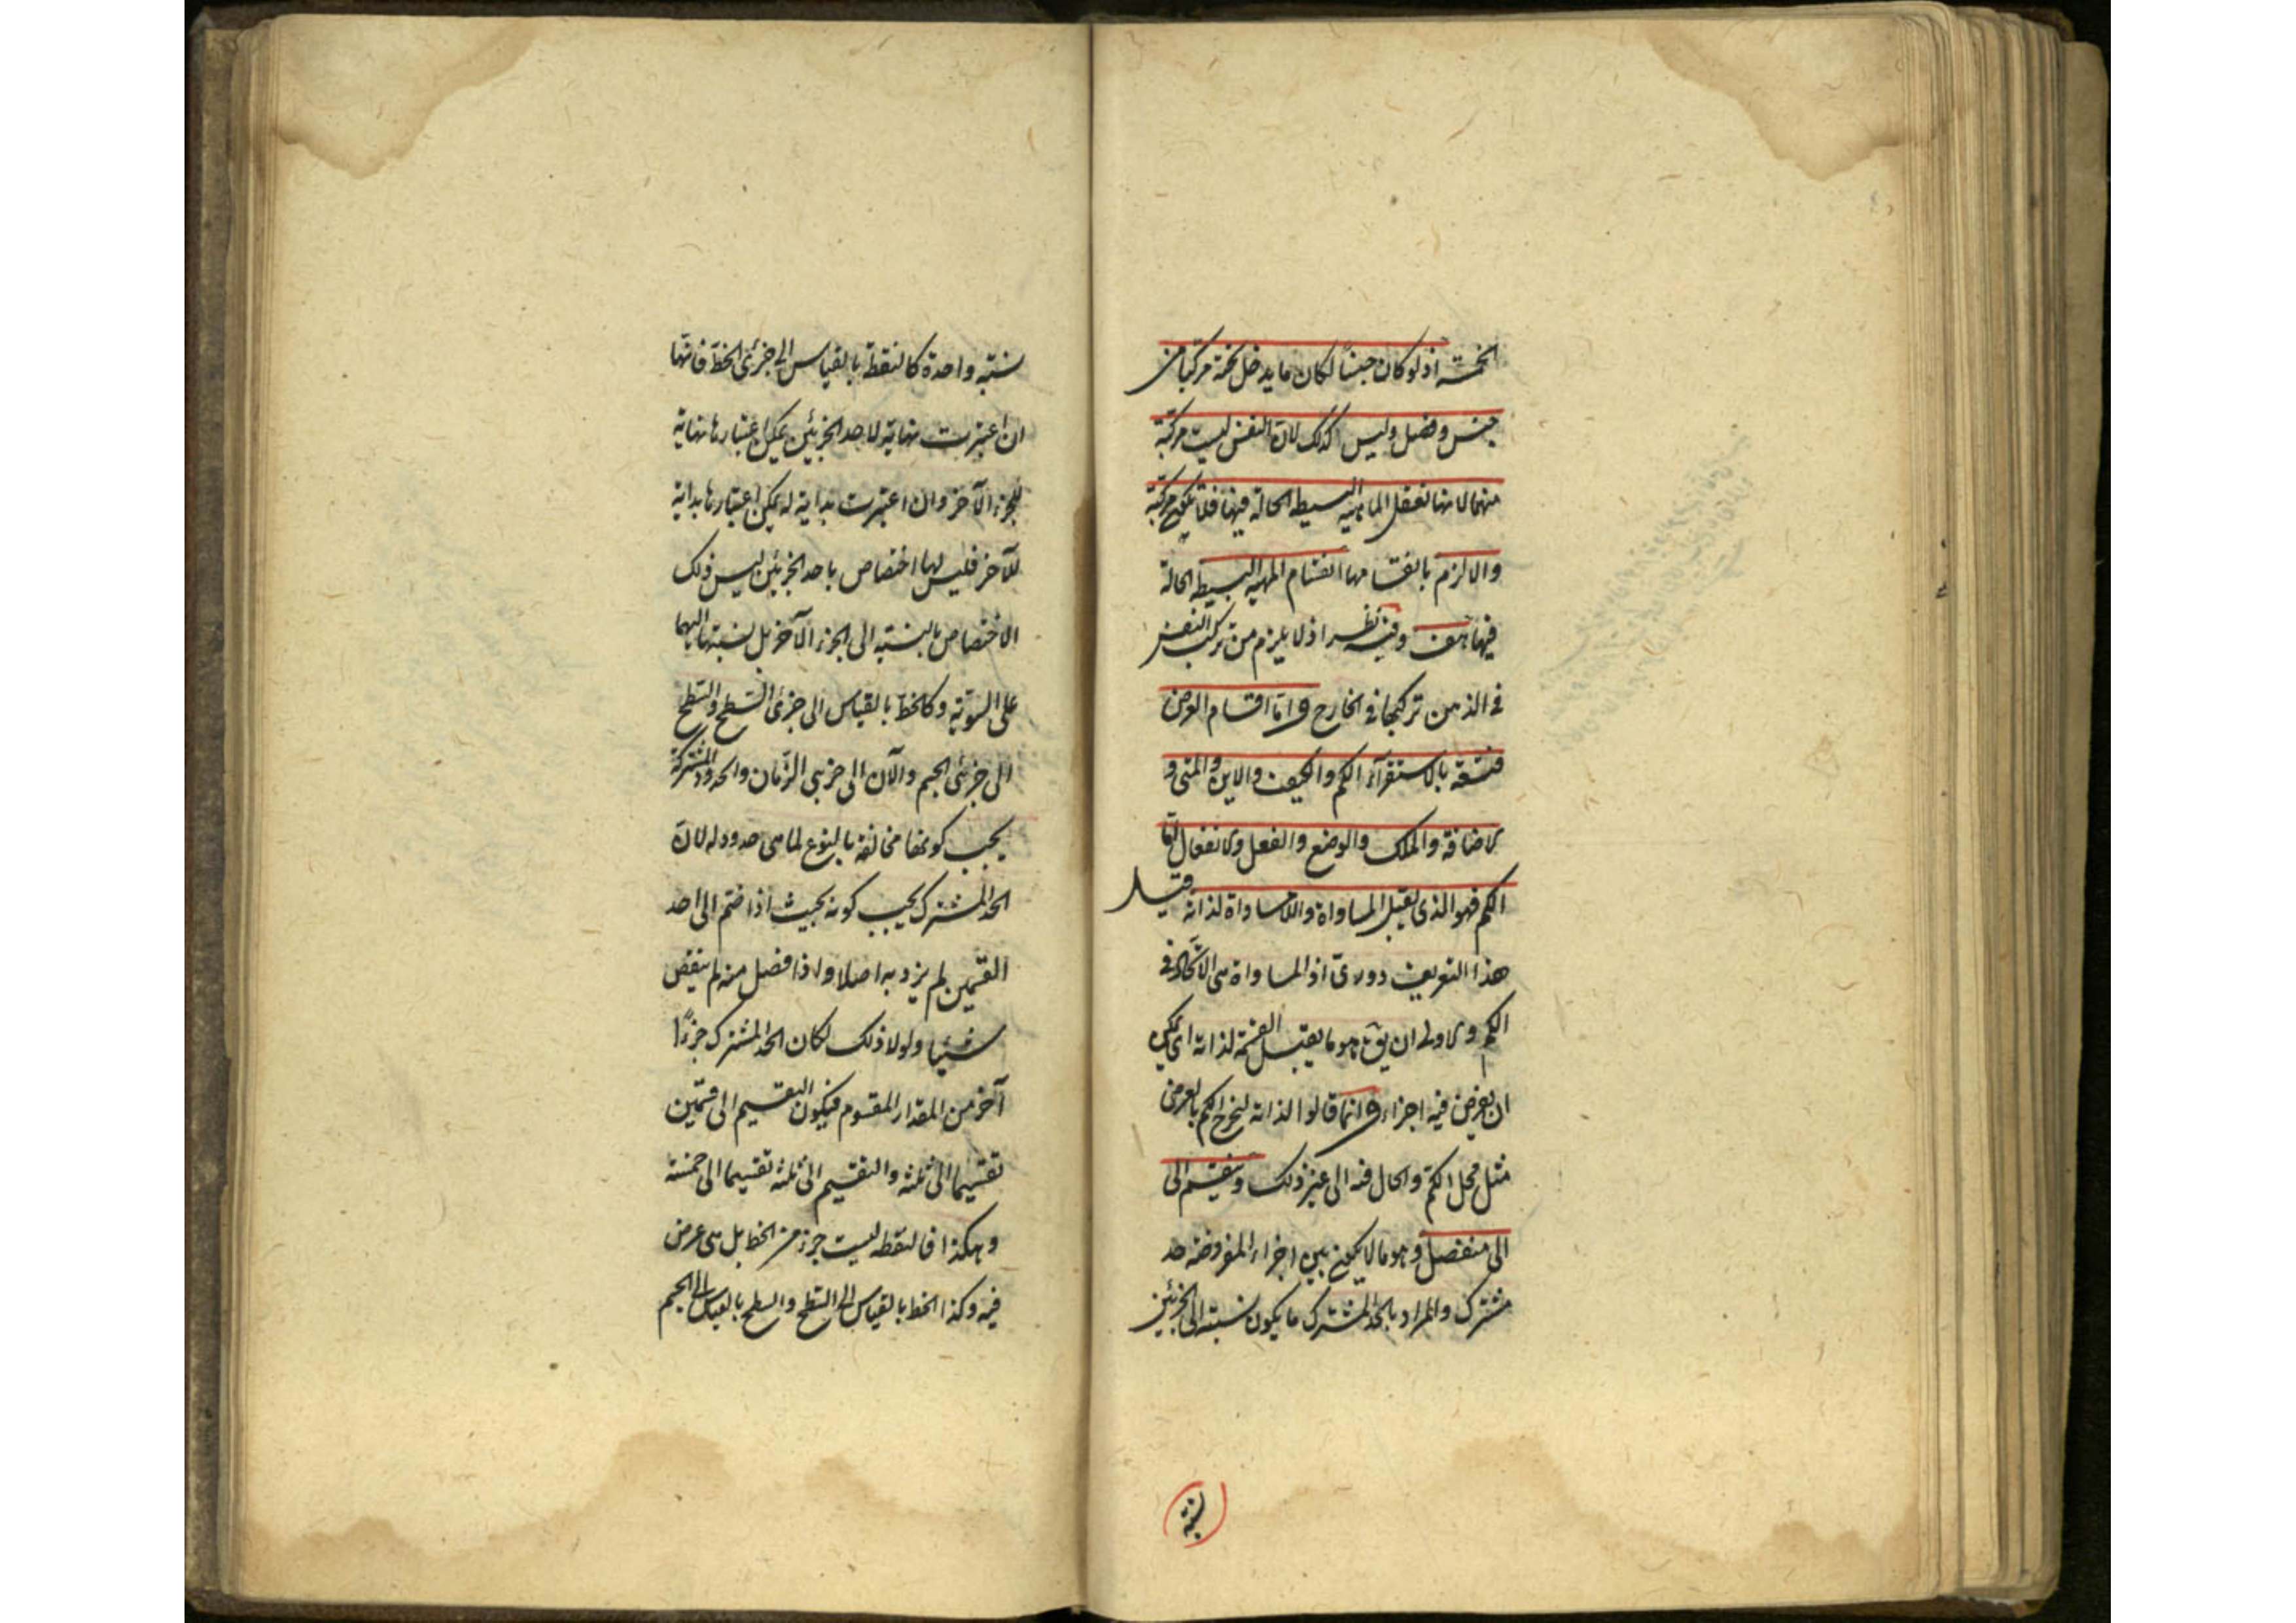 الخمسة اذ لو كان جنسًا لكان ما يدخل تحته مركبا من
جنس وفصل وليس كذلك لان النفس ليست مركبة
منهما لانها تعقل الماهية البسيطة الحالة فيها فلا تكون مركبة
والا لزم بانقسامها انقسام المهية البسيطة الحالة
فيها هف وفيه نظر اذ لا يلزم من تركب النفس
في الذهن تركبها في الخارج واما اقسام العرض
فتسعة بالاستقرآء الكم والكيف والاين والمتى و
الاضافة والملك والوضع والفعل والانفعال اما
الكم فهو الذى يقبل المساواة واللامساواة لذاته قيل
هذا التعريف دورى اذ المساواة هى الاتحاد في
الكم والاولى ان يق هو ما يقبل القسمة لذاته اى يمكن
ان يفرض فيه اجزاء وانما قالوا لذاته ليخرج الكم بالعرض
مثل محل الكم والحال فيه الى غير ذلك وينقسم الى
الى منفصل وهو ما لا يكون بين اجزاء المفروضة حد
مشترك والمراد بالحد المشترك ما يكون نسبته الى الجزئين
نسبة
نسبة واحدة كالنقطة بالقياس الى جزئى الخط فانها
ان اعتبرت نهاية لاحد الجزئين يمكن اعتبارها نهاية
للجزء الآخر وان اعتبرت بداية له يمكن اعتبارها بداية
للآخر فليس لها اختصاص باحد الجزئين ليس ذلك
الاختصاص بالنسبة الى الجزء الآخر بل نسبتها اليهما
على السوية وكالخط بالقياس الى جزئى السطح والسطح
الى جزئى الجسم والآن الى جزئى الزمان والحدود المشتركة
يجب كونها مخالفة بالنوع لما هى حدود له لان
الحد المشترك يجب كونه بحيث اذا ضم الى احد
القسمين لم يزد به اصلا واذا فصل منه لم ينقص
شيئا ولولا ذلك لكان الحد المشترك جزءًا
آخر من المقدار المقسوم فيكون التقسيم الى قسمين
تقسيما الى ثلثة والتقسيم الى ثلثة تقسيما الى خمسة
وهكذا فالنقطة ليست جزء من الخط بل هى عرض
فيه وكذا الخط بالقياس الى السطح والسطح بالقياس الى الجسم